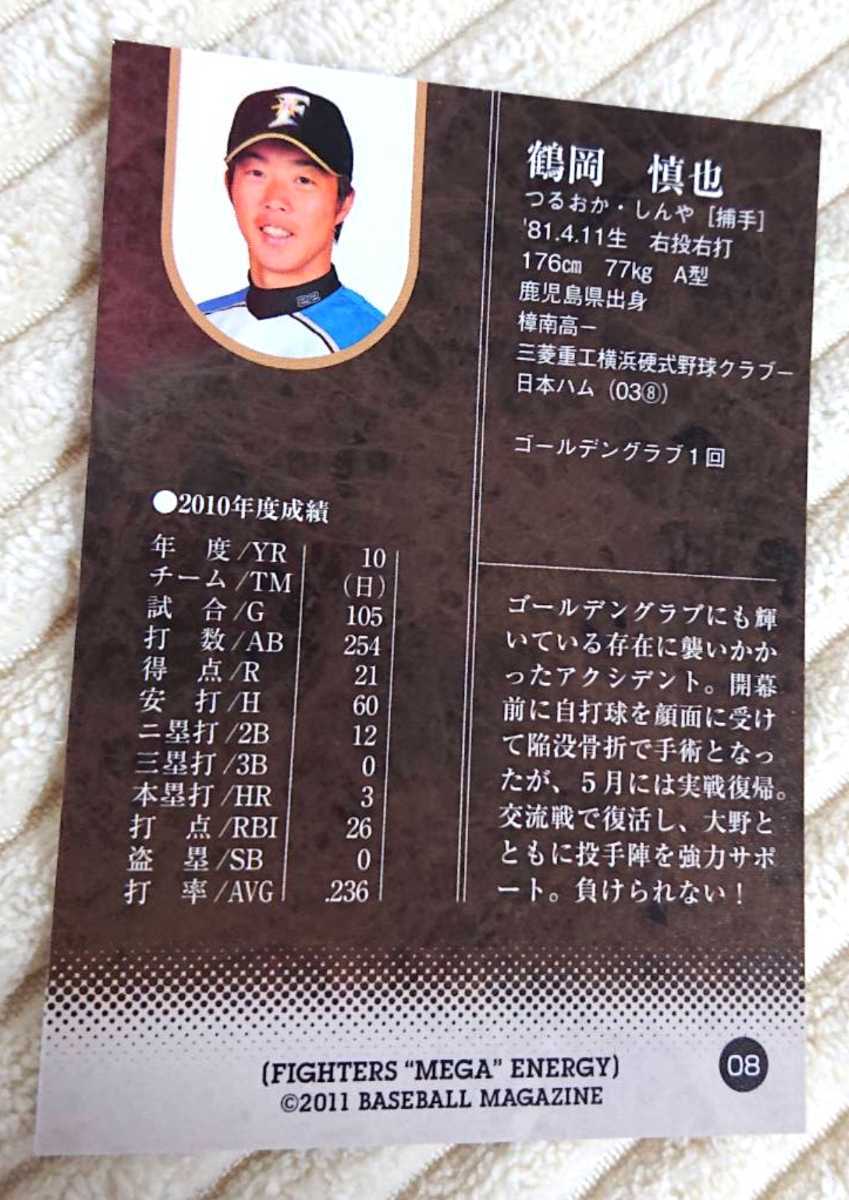 F
鶴岡 慎也
つるおか・しんや [捕手]
'81.4.11生 右投右打
176㎝ 77㎏ A型
鹿児島県出身
樟南高ー
三菱重工横浜硬式野球クラブー
日本ハム (03⑧)
ゴールデングラブ1回
●2010年度成績
年 度/YR 10
チーム/TM (日)
試 合/G 105
打 数/AB 254
得 点/R 21
安 打/H 60
二塁打/2B 12
三塁打/3B 0
本塁打/HR 3
打 点/RBI 26
盗 塁/SB 0
打 率/AVG .236
ゴールデングラブにも輝
いている存在に襲いかか
ったアクシデント。開幕
前に自打球を顔面に受け
て陥没骨折で手術となっ
たが、５月には実戦復帰。
交流戦で復活し、大野と
ともに投手陣を強力サポ
ート。負けられない！
(FIGHTERS “MEGA” ENERGY)
©2011 BASEBALL MAGAZINE
08